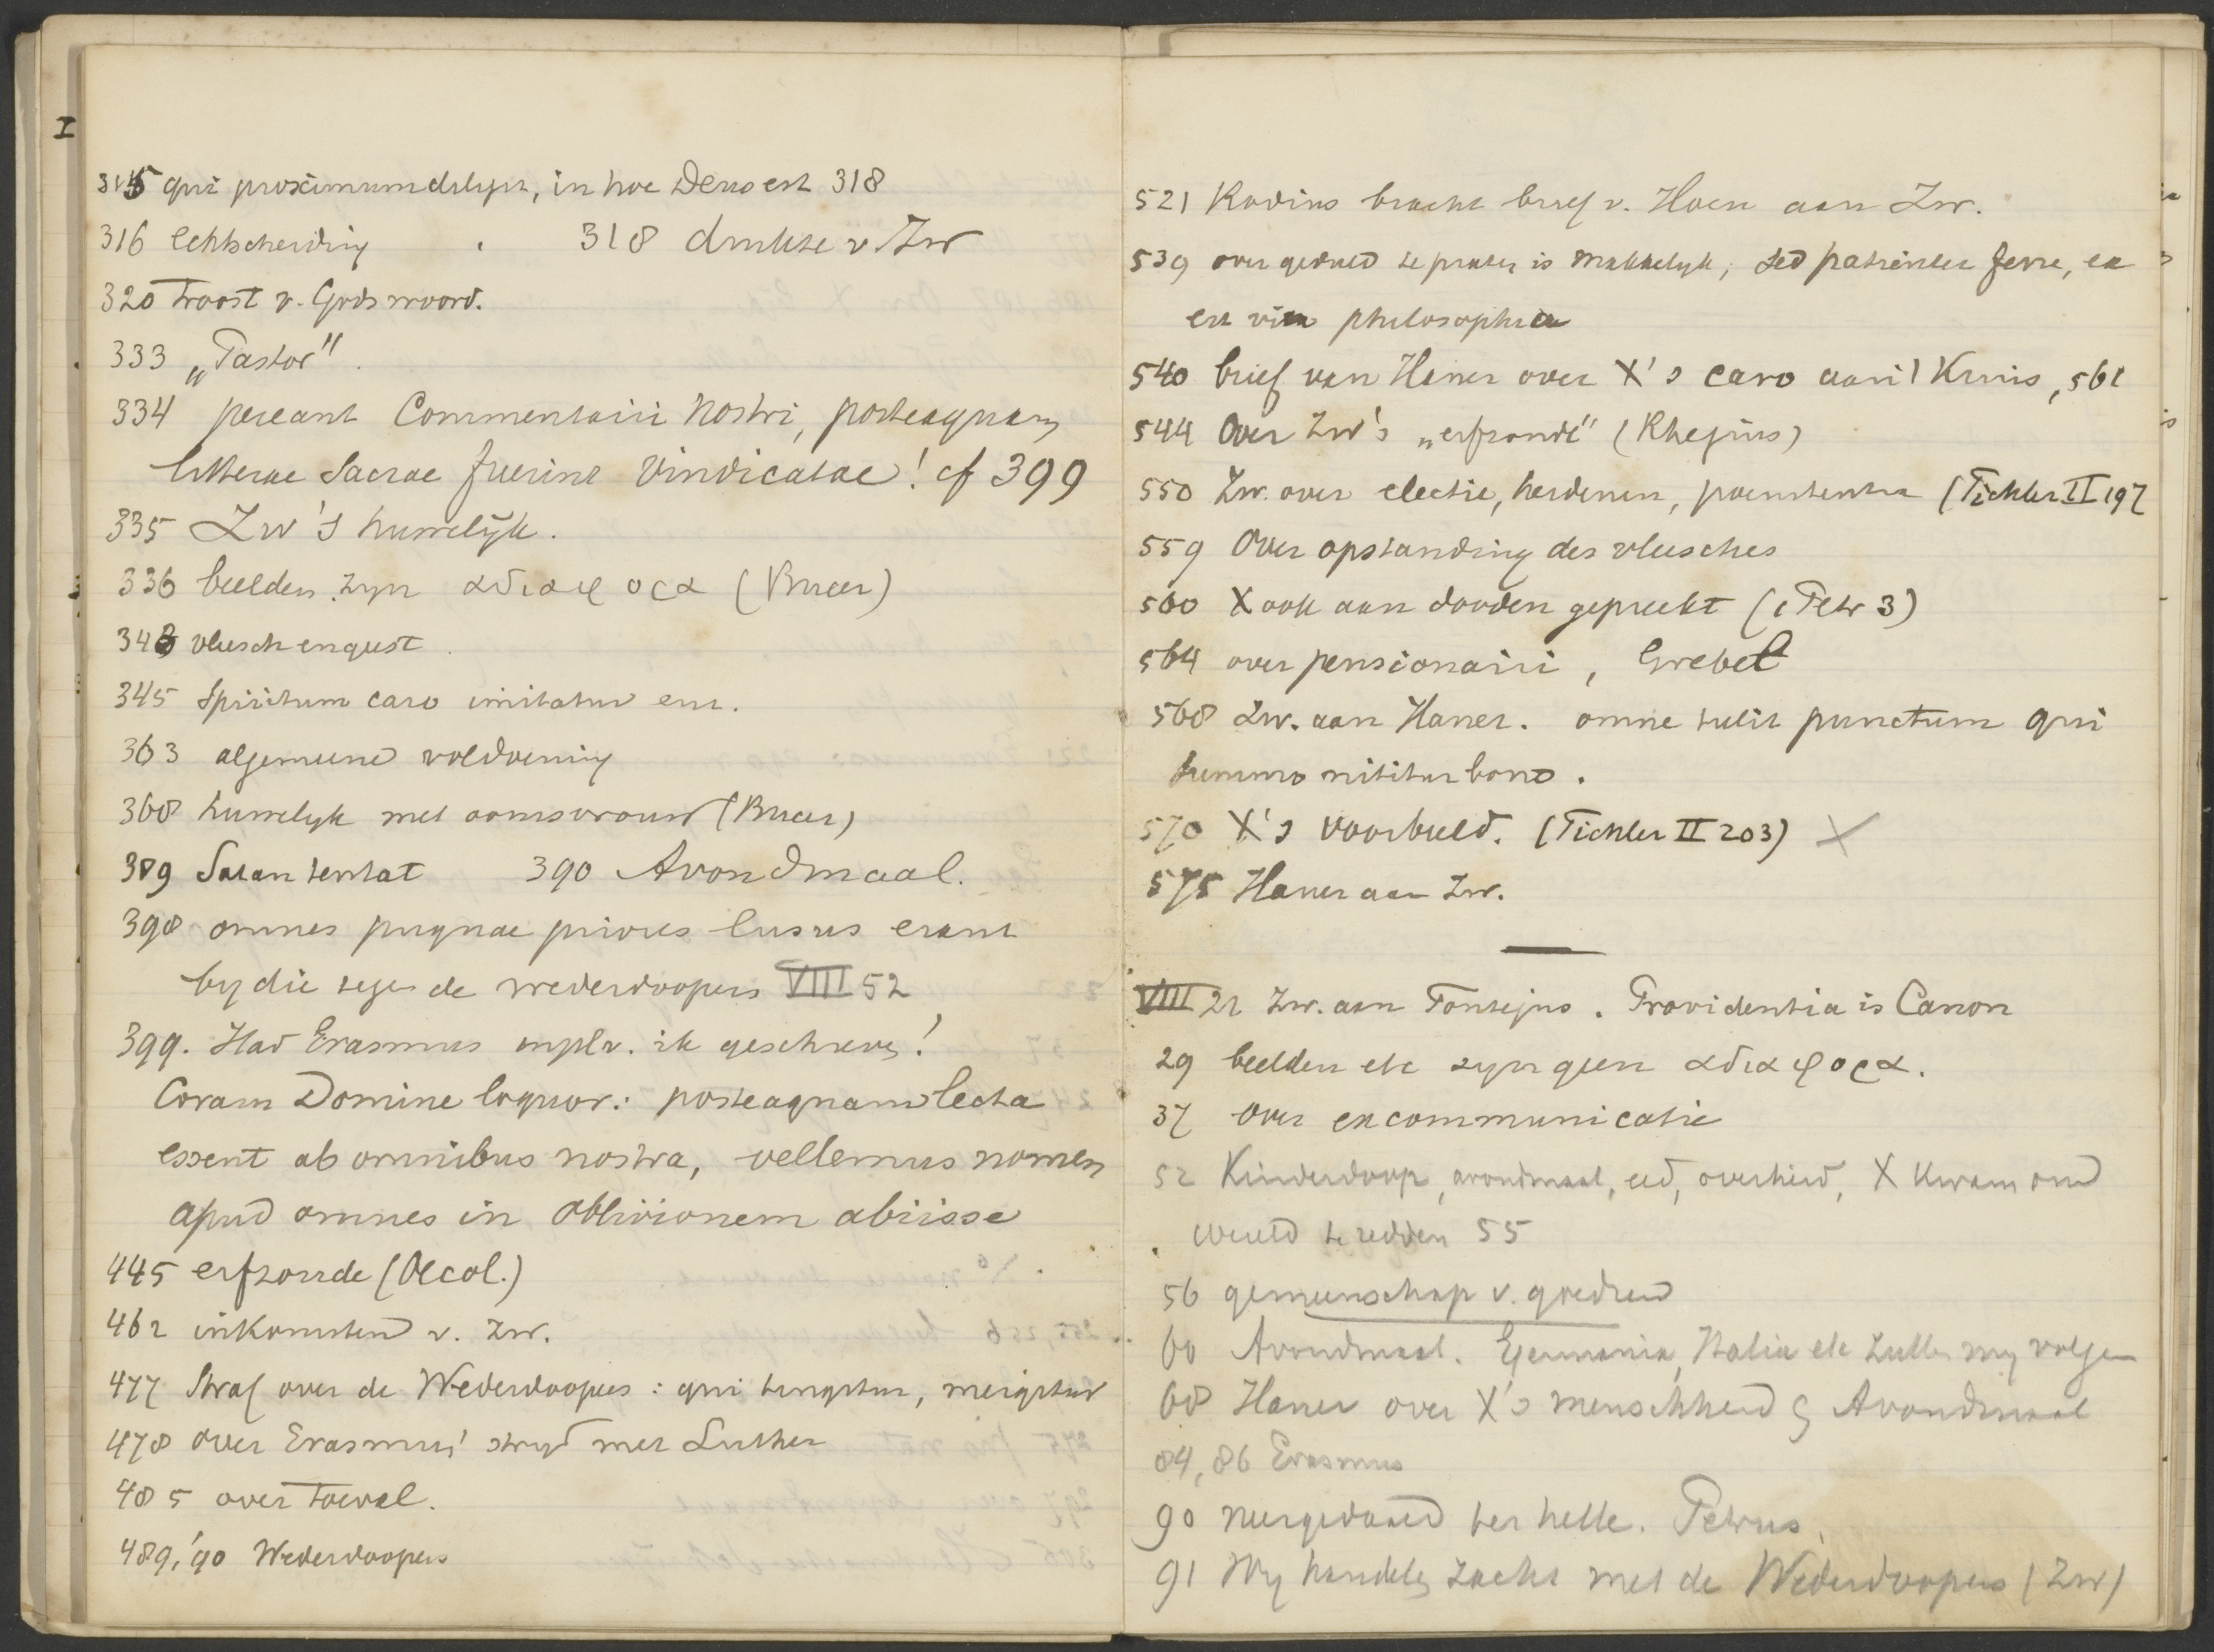 I
315 qui proximum diligit, in hoc Deus est 318
316 echtscheiding 318 drukte v. Zw
320 Troost v. Gods woord.
333 „Pastor"
334 pereant Commentarii nostri, posteaquam
litterae Sacrae fuerint vindicatae! cf 399
335 Zw's huwelijk.
336 beelden zyn αδιαφορα (Bucer)
343 vleesch en geest
345 Spiritum caro imitatur
363 algemeene voldoening
368 huwelyk met oomsvrouw (Bucer)
389 Satan tentat 390 Avondmaal.
398 omnes pugnae priores lusus erant
by die tegen de wederdoopers VIII 52
399. Had Erasmus ik geschreven!
Coram Domine loquor: posteaquam lecta
essent ab omnibus nostra, vellemus nomen
apud omnes in oblivionem abiisse
445 erfzonde (Oecol.)
462 inkomsten v. Zw.
477 Straf over de Wederdoopers: qui tingitur, mergitur
478 over Erasmus' stryd met Luther
485 over toeval.
489, '90 Wederdoopers
521 Rodius bracht brief v. Hoen aan Zw.
539 over geduld te praten is makkelyk, sed patienter ferre, ea
est vera philosophia
540 brief van Haner over X's caro aan 't Kruis, 561
544 Over Zw's „erfzonde" (Rhegius)
550 Zw. over electie, heidenen, poenitentia (Tichler II 197
559 Over opstanding des vleesches
560 X ook aan dooden gepreekt (1 Petr 3)
564 over pensionarii, Grebel
568 Zw. aan Haner. omne tulit punctum qui
summo nititur bono.
570 X's voorbeeld. (Tichler II 203) X
575 Haner aan Zw.
VIII 21 Zw. aan Fontejus. Providentia is Canon
29 beelden etc zyn geen αδιαφορα.
37 over excommunicatie
52 Kinderdoop, avondmaal, eed, overheid, X kwam om d
wereld te redden 55
56 gemeenschap v. goederen
60 Avondmaal. Germania, Italia etc zullen my volgen
68 Haner over X's menschheid & Avondmaal
84, 86 Erasmus
90 neergedaald ter helle. Petrus.
91 Wy handelen zacht met de Wederdoopers (Zw)